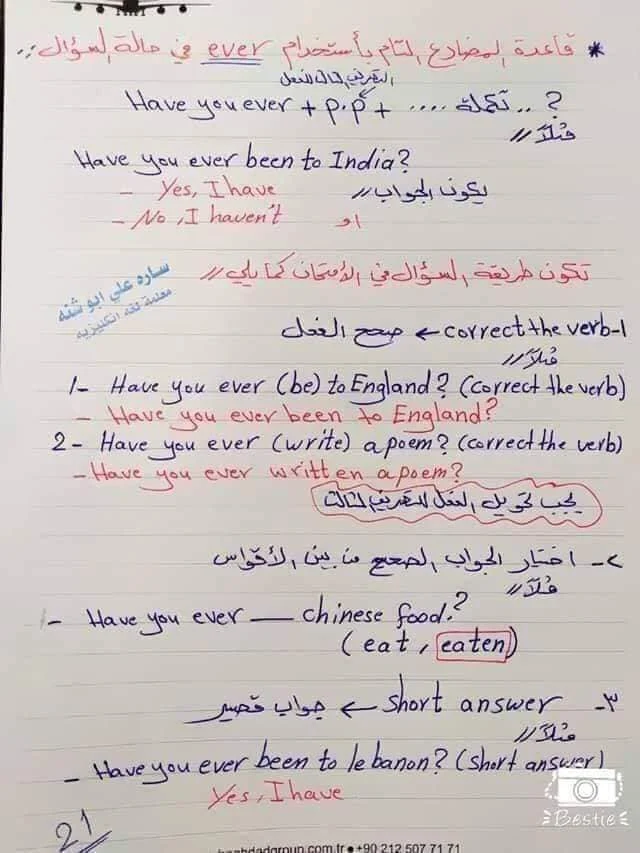 * قاعدة المضارع التام بأستخدام ever في حالة السؤال //
التصريف الثالث للفعل
Have you ever + p.p + .... تكملة ..?
مثلاً //
Have you ever been to India?
- Yes, I have يكون الجواب //
- No, I haven't او
تكون طريقة السؤال في الأمتحان كما يلي //
ساره علي ابو شنه
معلمة لغة انكليزيه
1- correct the verb ← صحح الفعل
مثلاً //
1- Have you ever (be) to England? (correct the verb)
- Have you ever been to England?
2- Have you ever (write) a poem? (correct the verb)
- Have you ever written a poem?
يجب تحويل الفعل للتصريف الثالث
٢- اختار الجواب الصحيح من بين الأقواس
مثلاً //
- Have you ever ___ chinese food?
(eat, eaten)
٣- short answer ← جواب قصير
مثلاً //
- Have you ever been to lebanon? (short answer)
Yes, I have
21
Bestie
baghdadgroup.com.tr • +90 212 507 71 71